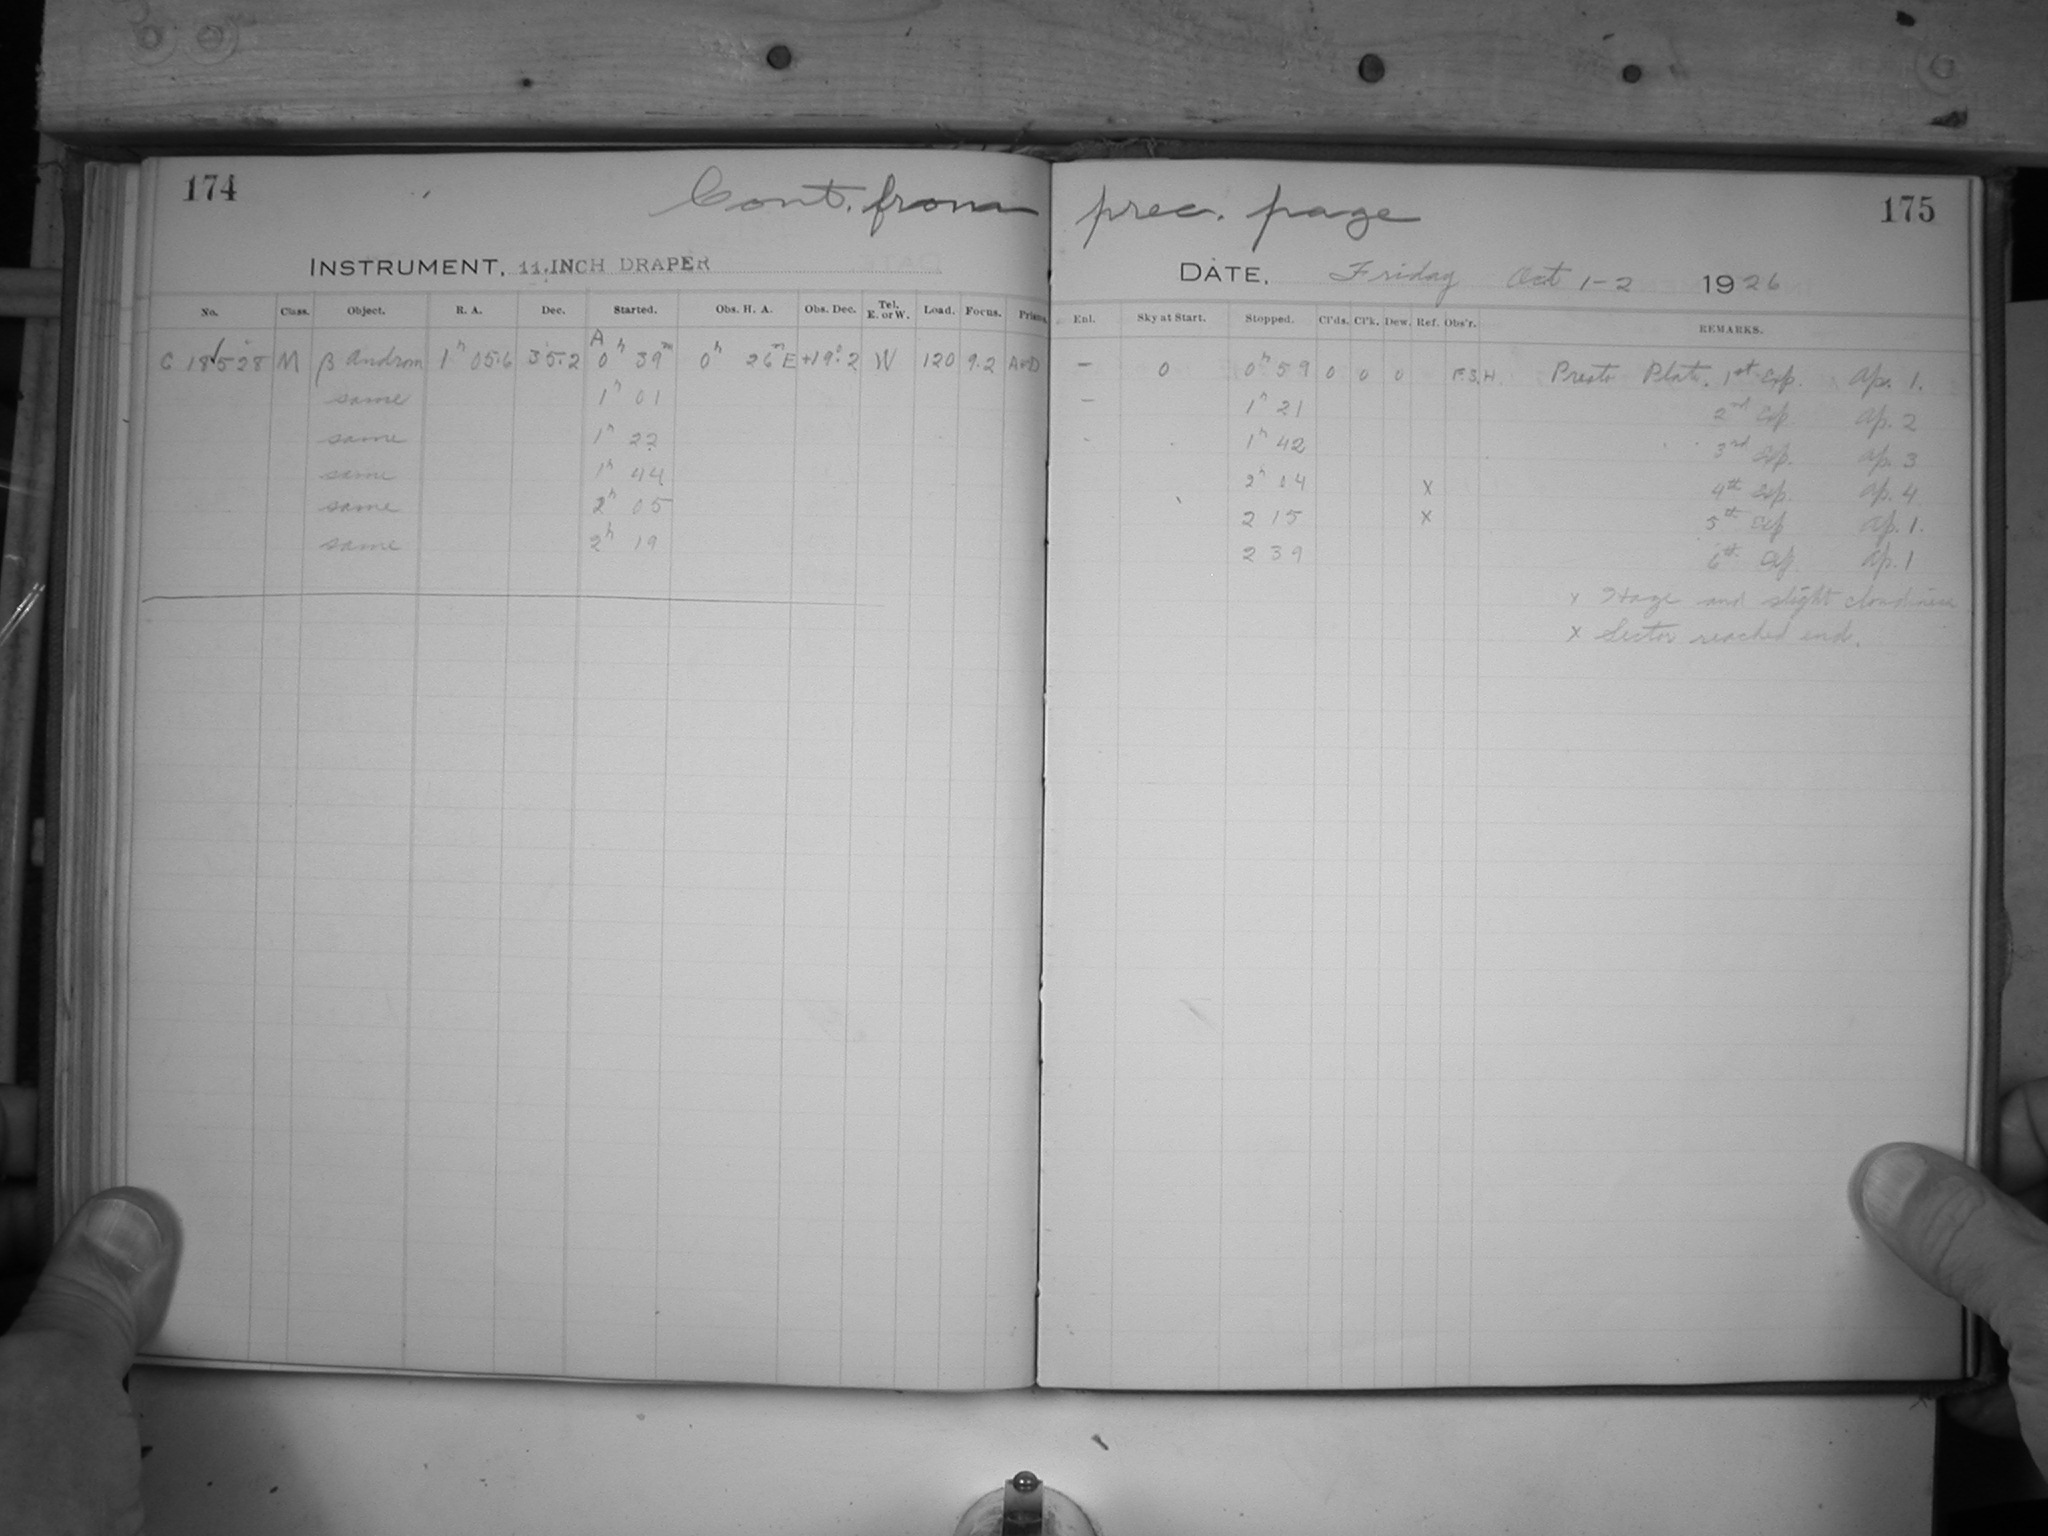 174
Cont. from prec. page
175
INSTRUMENT, 11.INCH DRAPER
DATE, Friday Oct 1-2 1926
No. Class. Object. R. A. Dec. Started. Obs. H. A. Obs. Dec. Tel. E. or W. Load. Focus. Prisms. Enl. Sky at Start. Stopped. Cl'ds. Cl'k. Dew. Ref. Obs'r. REMARKS.
A
C 18528 M β Androm 1h 05.6 35.2 0h 39m 0h 26m E +19°.2 W 120 9.2 A+D — 0 0h 59 0 0 0 F.S.H. Presto Plate. 1st Exp. Ap. 1.
same 1h 01 — 1h 21 2nd Exp. Ap. 2
same 1h 22 1h 42 3rd Exp. Ap. 3
same 1h 44 2h 04 x 4th Exp. Ap. 4
same 2h 05 2 15 x 5th Exp Ap. 1.
same 2h 19 2 39 6th Exp. Ap. 1
x Haze and slight cloudiness
x Sector reached end.